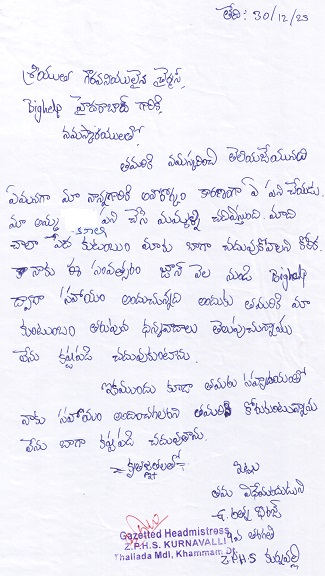 తేది: 30/12/25
శ్రీయుత గౌరవనీయులైన చైర్మన్,
Bighelp హైదరాబాద్ గారికి,
నమస్కారములతో.
తమరికి నమస్కరించి తెలియజేయునది
ఏమనగా మా నాన్నగారికి అనారోగ్యం కారణంగా ఏ పని చేయడు.
మా అమ్మ కూలి పని చేసి మమ్మల్ని చదివిస్తుంది. మాది
చాలా పేద కుటుంబం మాకు బాగా చదువుకోవాలని కోరిక.
నాకు ఈ సంవత్సరం జూన్ నెల నుండి Bighelp
ద్వారా సహాయం అందుచున్నది అందుకు తమరికి మా
కుటుంబం తరుపున ధన్యవాదాలు తెలుపుచున్నాము
నేను కష్టపడి చదువుకుంటాను.
ఇకముందు కూడా తమరు సహృదయంతో
నాకు సహాయం అందించగలరని తమరిని కోరుకుంటున్నాను
నేను బాగా కష్టపడి చదువుతాను.
కృతజ్ఞతలతో
ఇట్లు
తమ విధేయుడు
తరగతి
Z.P.H.S కుర్నవల్లి
Gazetted Headmistress
Z.P.H.S. KURNAVALLI
Thallada Mdl, Khammam